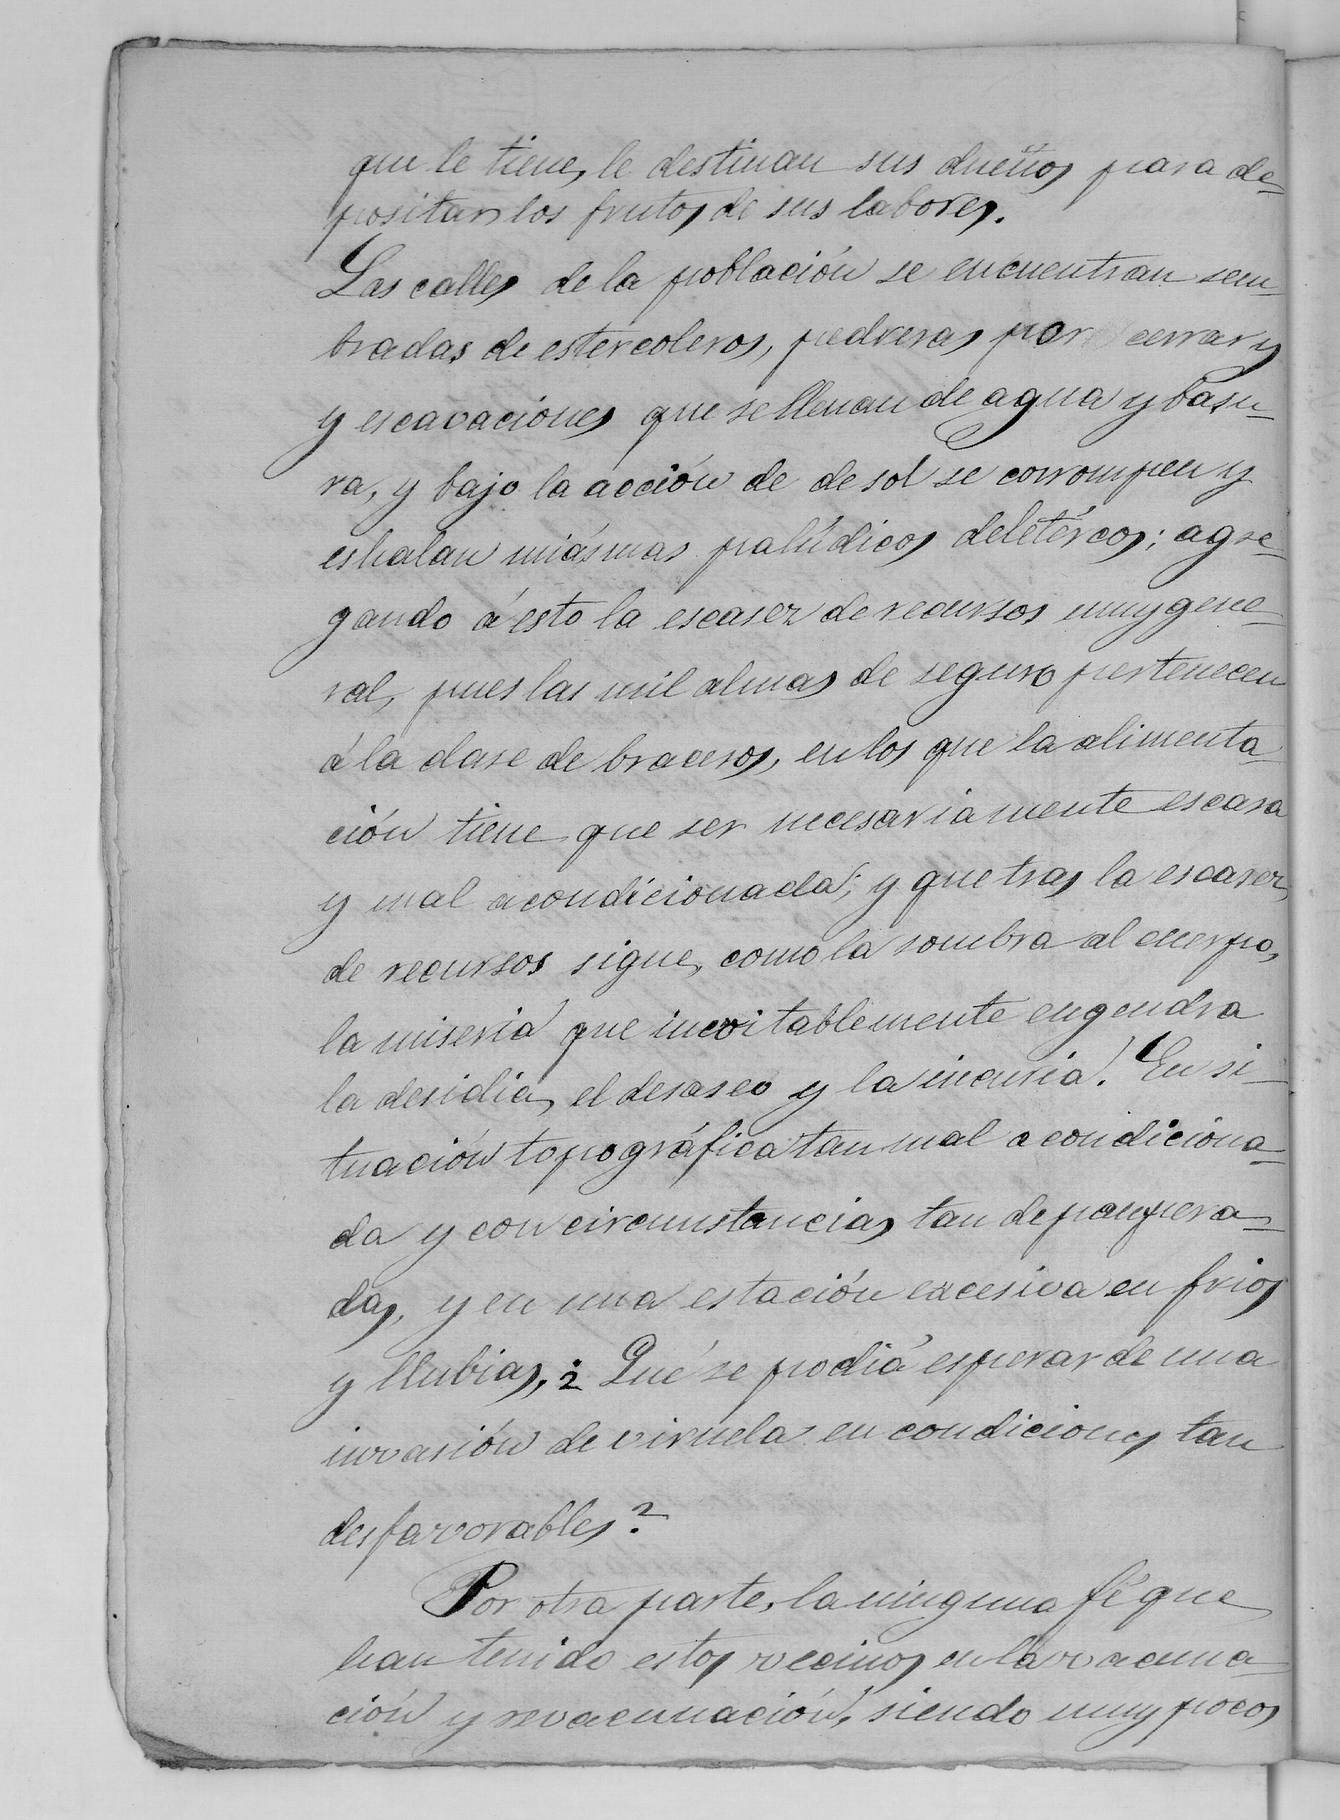 que le tiene, le destinan sus dueños para de-
positar los frutos de sus labores.
Las calles de la población se encuentran sem-
bradas de estercoleros, pedreras por cerrar y
y escavaciones que se llenan de agua y basu-
ra, y bajo la acción de de sol se corrompen y
eshalan miásmas palúdicos deletéreos; agre-
gando á esto la escasez de recursos muy gene-
ral, pues las mil almas de seguro pertenecen
á la clase de braceros, en los que la alimenta-
ción tiene que ser necesariamente escasa
y mal acondicionada; y que tras la escasez,
de recursos sigue, como la sombra al cuerpo,
la miseria que inevitablemente engendra
la desidia, el desaseo y la incuria. En si-
tuación topográfica tan mal acondiciona-
da y con circunstancias tan depaupera-
das, y en una estación excesiva en frios
y llubias, ¿ Qué se podía esperar de una
invasión de viruela en condiciones tan
desfavorables?
Por otra parte, la ninguna fé que
han tenido estos vecinos en la vacuna-
ción y revacunación, siendo muy pocos